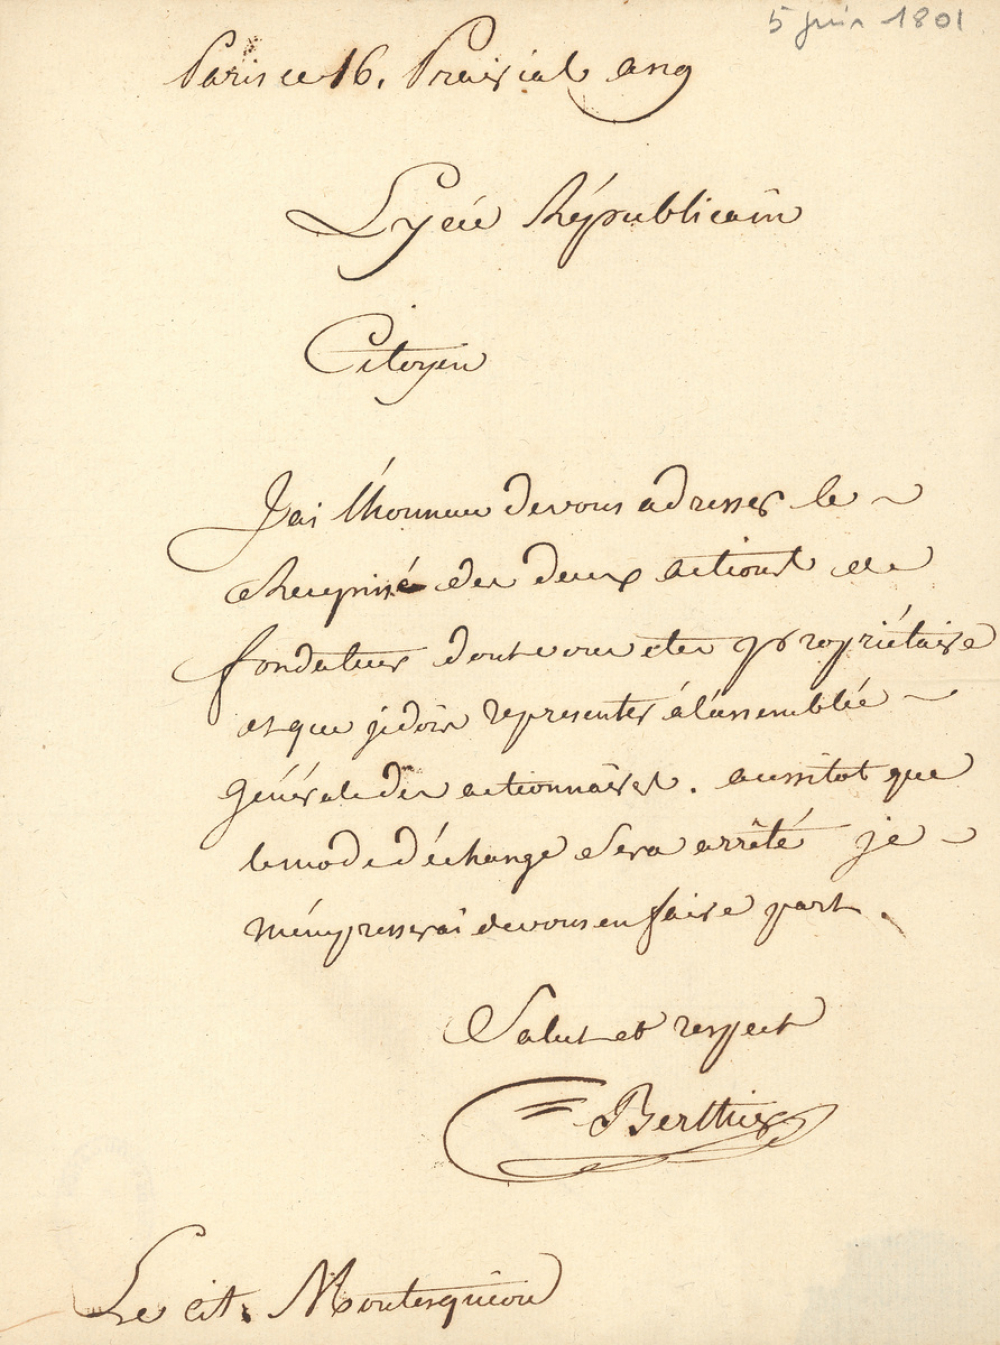 5 juin 1801
Paris ce 16. Prairial an 9
Lycée Républicain
Citoyen
J'ai l'honneur de vous adresser le ~
Recepissé des deux actions de
fondateur dont vous etes propriétaire
et que je dois representer à l'assemblée ~
générale des actionnaires. aussitot que
le mode d'échange sera arrêté je ~
m'empresserai de vous en faire part.
Salut et respect
Berthier
Le cit. Montesquiou